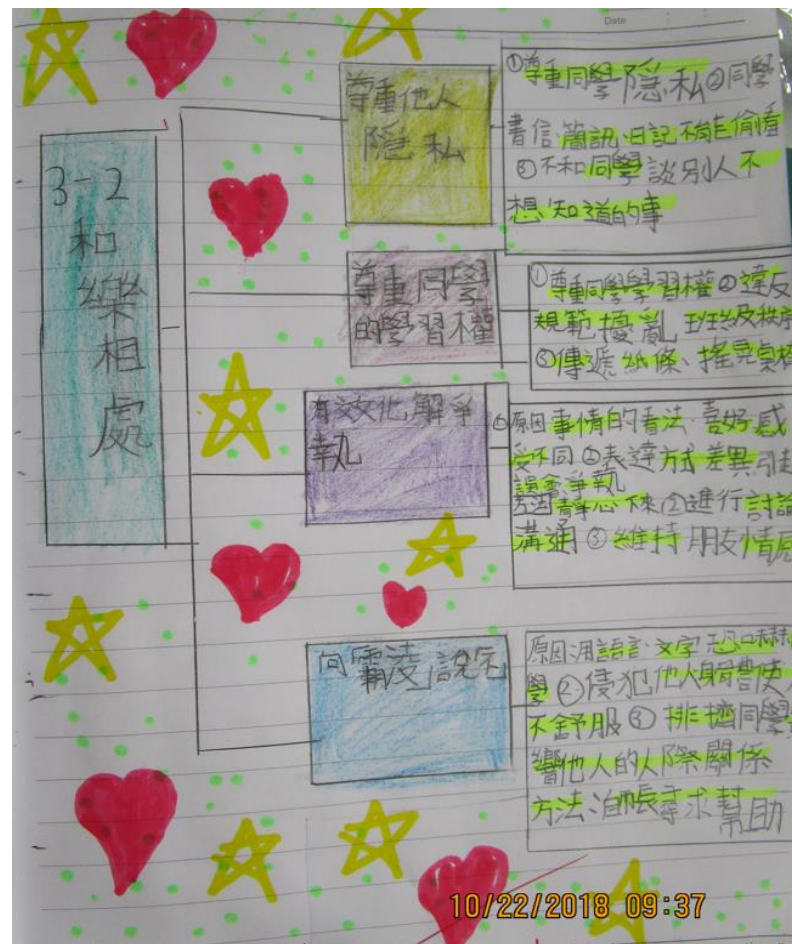 Date
3-2
和
樂
相
處
尊重他人
隱私
①尊重同學隱私②同學
書信、簡訊、日記不能偷看
③不和同學談別人不
想知道的事
尊重同學
的學習權
①尊重同學學習權②違反
規範擾亂班級秩序
③傳遞紙條、搖晃桌椅
有效化解爭
執
①原因事情的看法、喜好感
受不同②表達方式差異引起
誤會爭執
靜心下來②進行討論
溝通③維持朋友情感
向霸凌說
原因:用語言、文字恐嚇
學②侵犯他人身體使
不舒服③排擠同學
響他人的人際關係
方法:師長尋求幫助
10/22/2018 09:37